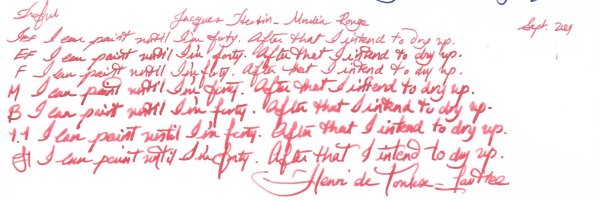 Jacques Herbin - Moulin Rouge Sept. 2021
EF I can paint until I'm forty. After that I intend to dry up.
EF I can paint until I'm forty. After that I intend to dry up.
F I can paint until I'm forty. After that I intend to dry up.
M I can paint until I'm forty. After that I intend to dry up.
B I can paint until I'm forty. After that I intend to dry up.
1.1 I can paint until I'm forty. After that I intend to dry up.
I can paint until I'm forty. After that I intend to dry up.
Henri de Toulouse-Lautrec